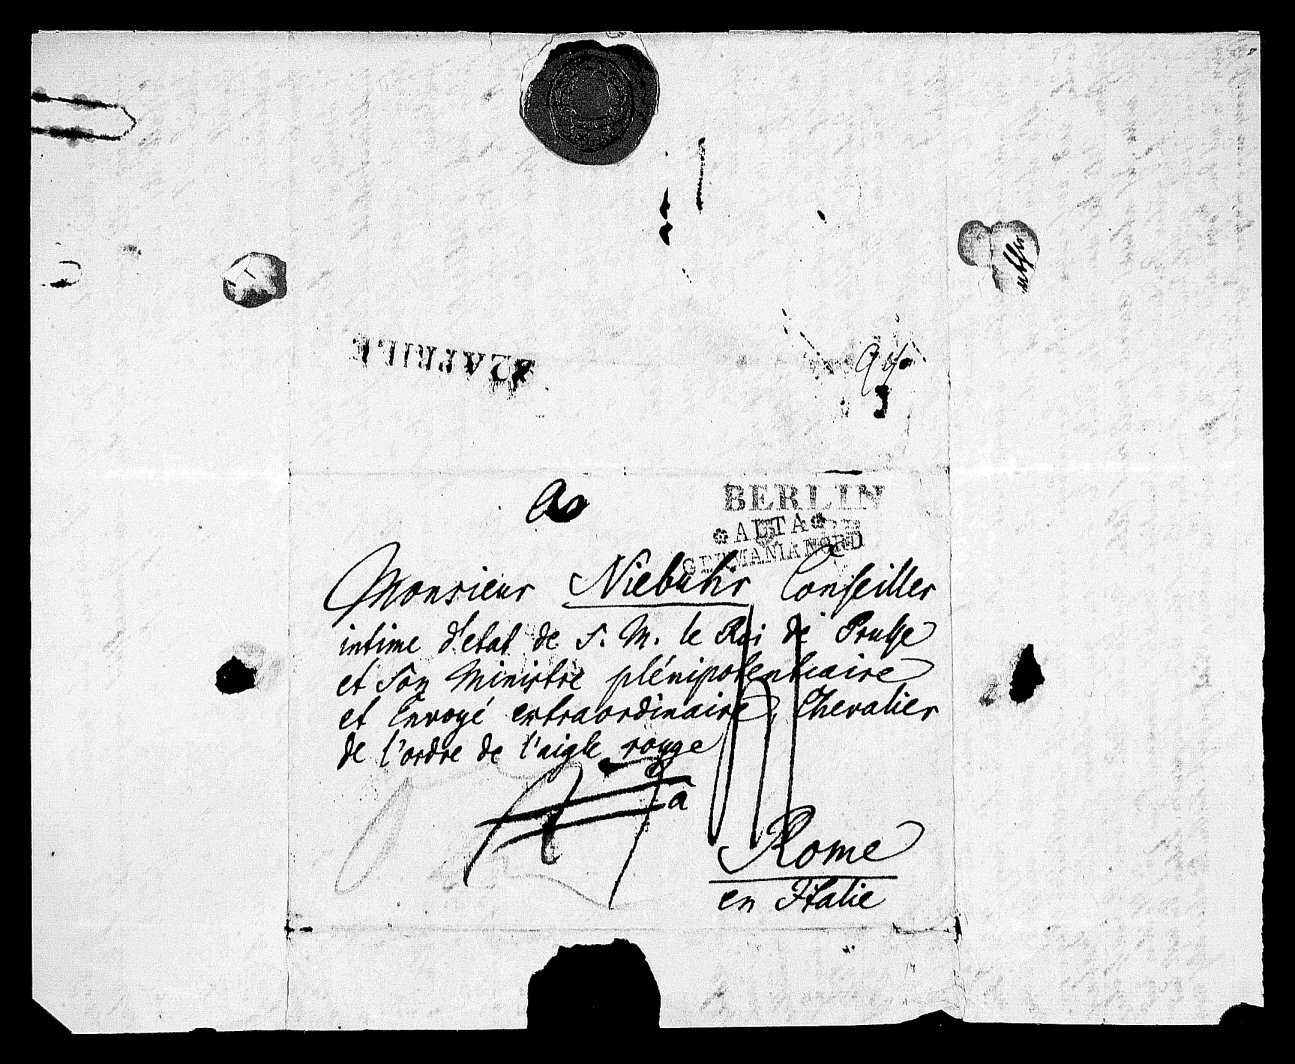 22 APRILE
BERLIN
ALTA
GERMANIA NORD
a
Monsieur Niebuhr Conseiller
intime d'etat de S. M. le Roi de Prusse
et Son Ministre plénipotentiaire
et Envoyé extraordinaire, Chevalier
de l'ordre de l'aigle rouge
à
Rome
en Italie